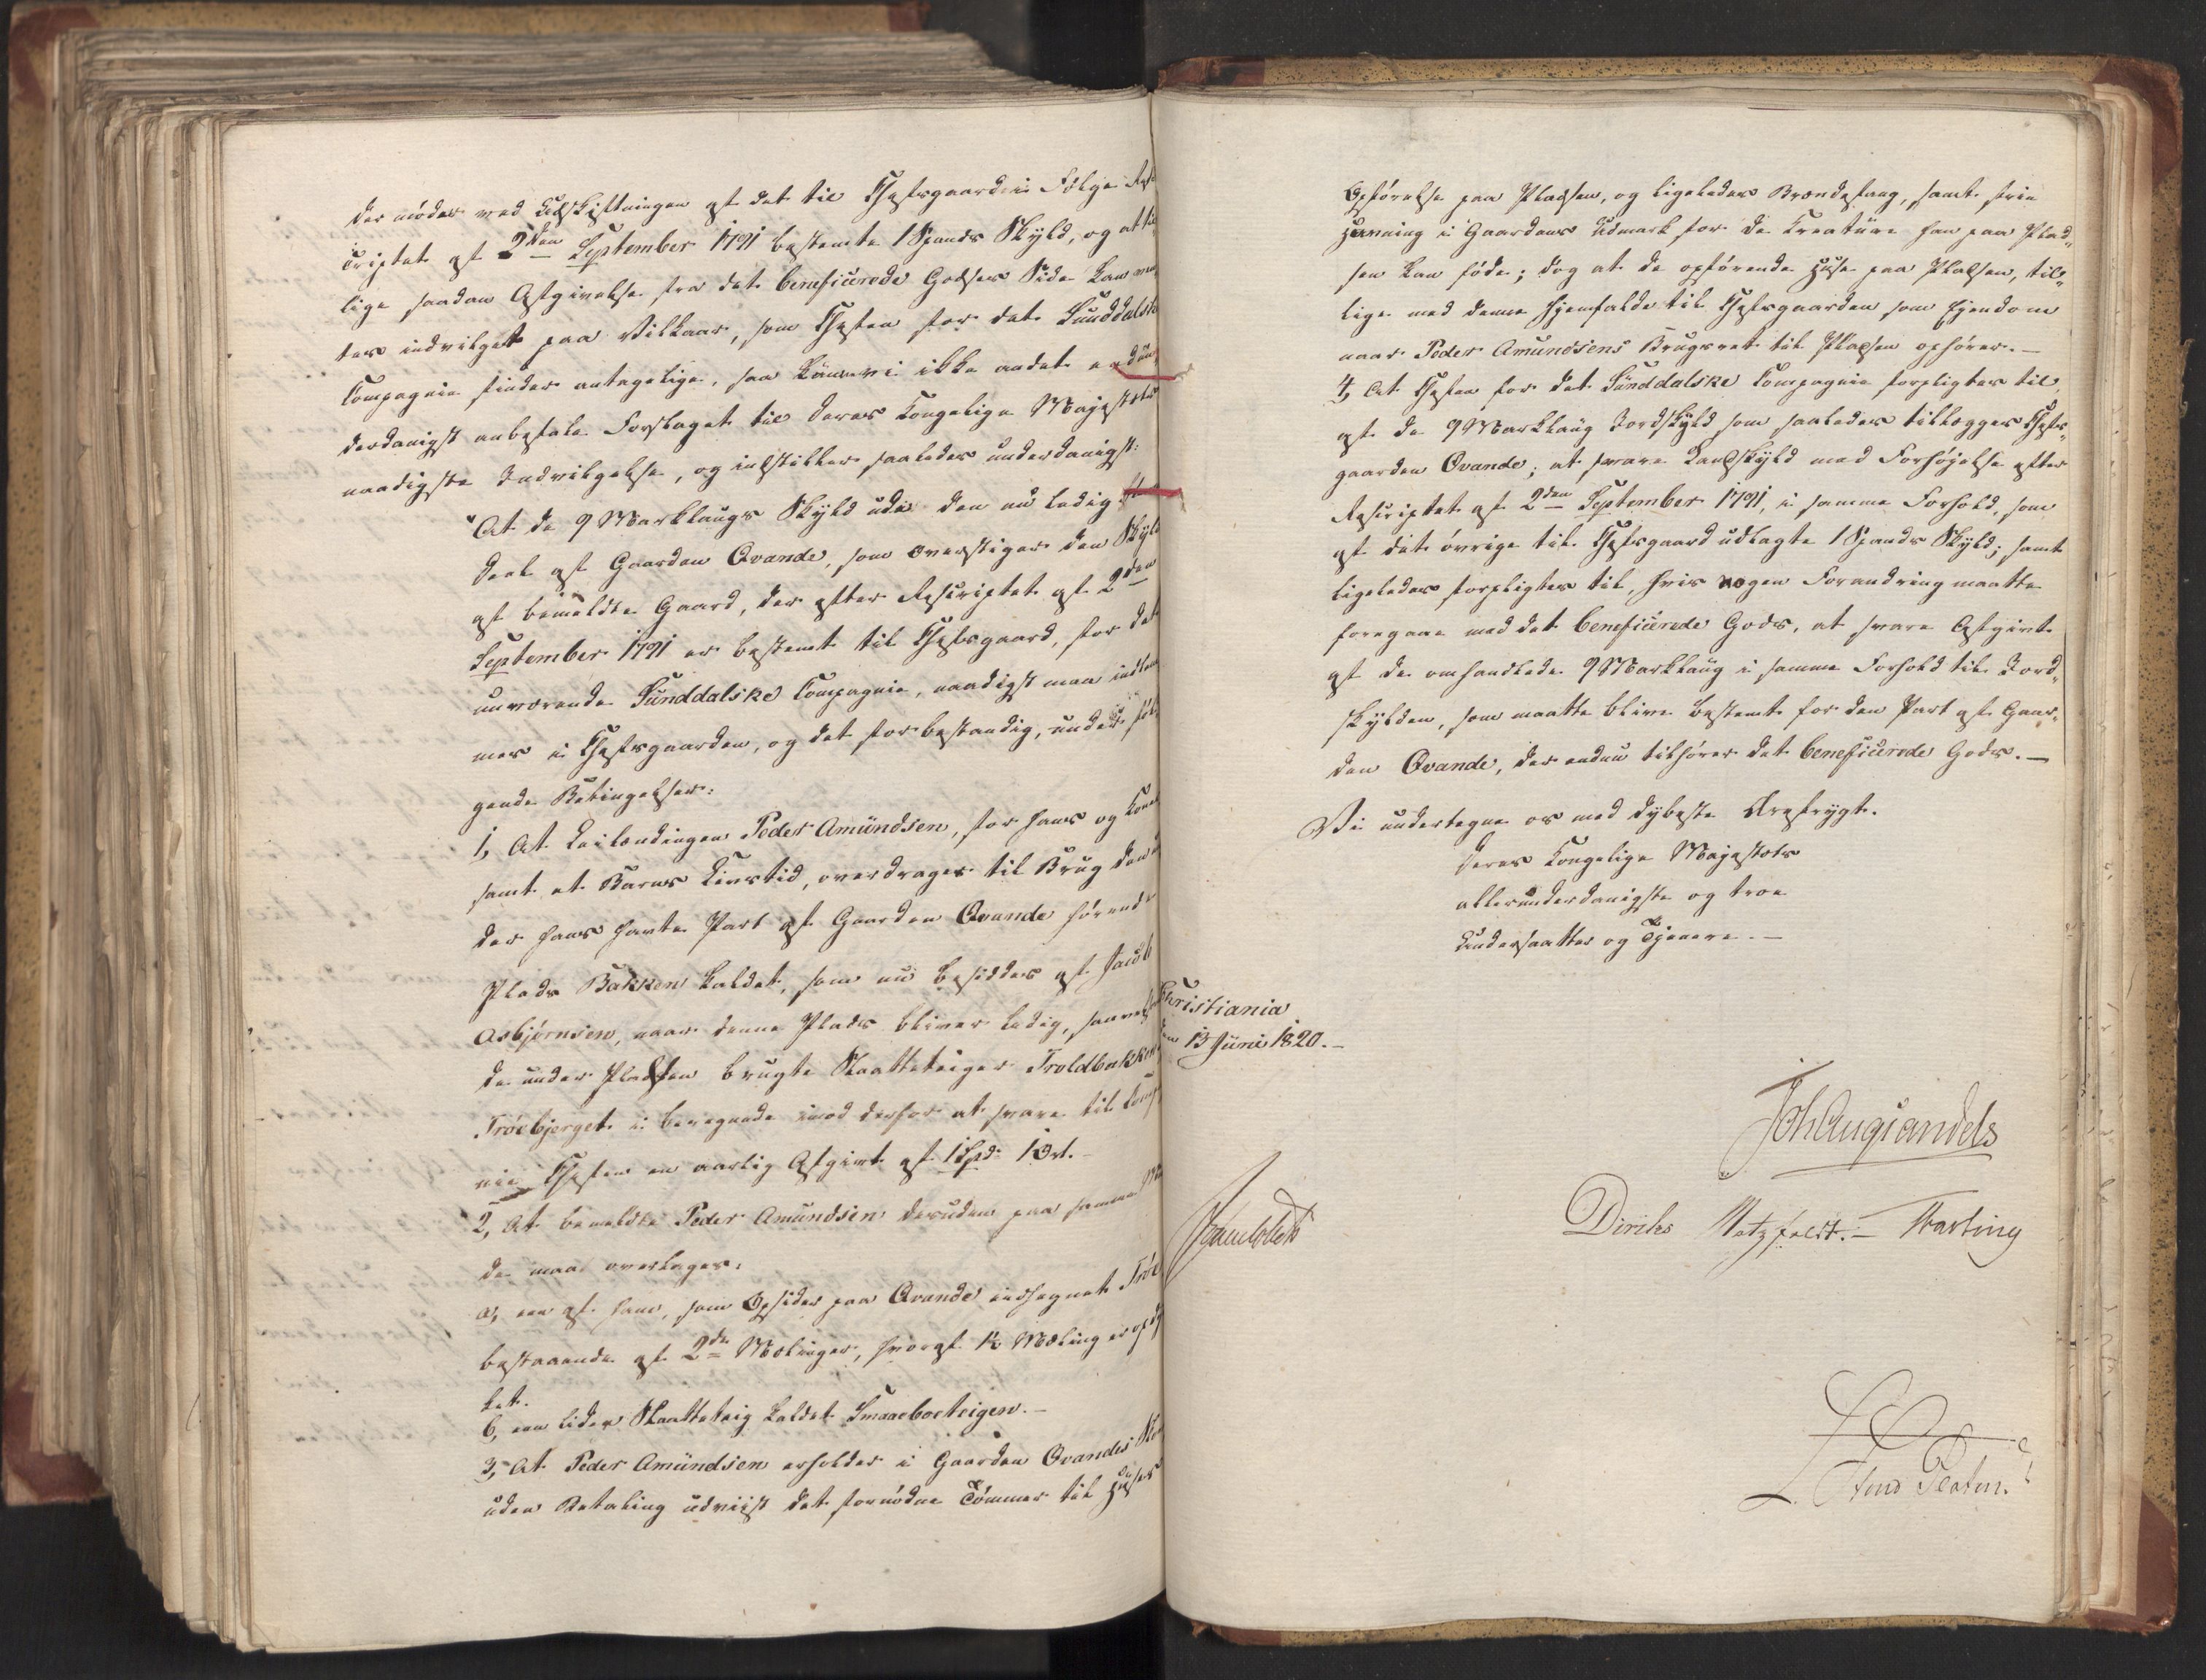 der nødes ved Udskiftningen af det til Chefsgaard i Følge Res-
criptet af 2den September 1791 bestemte 1 Spands Skyld, og at til-
lige saadan Afgivelse fra det beneficerede Godses Side kan
tes indvilget paa Vilkaar, som Chefen for det Sunddalske
Compagnie finder antagelige, saa kunne vi ikke andet end un-
derdanigst anbefale Forslaget til Deres Kongelige Majestæts
naadigste Indvilgelse, og indstiller saaledes underdanigst:
"At de 9 Marklaugs Skyld udi den nu ledig
Deel af Gaarden Qvande, som overstiger den Skyld
af bemeldte Gaard, der efter Rescriptet af 2den
September 1791 er bestemt til Chefsgaard, for det
nuværende Sunddalske Compagnie, naadigst maa indlem-
mes i Chefsgaarden, og det for bestandig, under føl-
gende Betingelser:
1, At Leilændingen Peder Amundsen, for hans og Kones
samt et Barns Livstid, overdrages til Brug den un-
der hans havte Part af Gaarden Qvande hørende
Plads Bakken kaldet, som nu besiddes af Jacob
Asbjørnsen, naar denne Plads bliver ledig, saavel
de under Pladsen brugte Slaatteteiger Troldbakken
Tröebjerget i beregnede imod derfor at svare til Compag-
nie Chefen en aarlig Afgivt af 1 Spd. 1 Ort.
2, At bemeldte Peder Amundsen desuden paa samme
de maa overtages:
a, een af ham, som Opsidder paa Qvande indhegnet Tröe
bestaaende af 2de Mælinger, hvoraf 1½ Mæling er opdyr-
ket.
b, een liden Slaatteteig kaldet Smaaeboeteigen.—
3, At Peder Amundsen erholder i Gaarden Qvandes Skov
uden Betaling udviist det fornødne Tømmer til Huses
Opførelse paa Pladsen, og ligeledes Brændefang, samt frie
Havning i Gaardens Udmark for de Kreature han paa Plad-
sen kan føde; dog at de opførende Huse paa Pladsen, til-
lige med denne hjemfalder til Chefsgaarden som Ejendom
naar Peder Amundsens Brugsret til Pladsen ophører.—
4, At Chefen for det Sunddalske Compagnie forpligtes til
af de 9 Marklaug Jordskyld som saaledes tillægges Chefs-
gaarden Qvande, at svare Landskyld med Forhøjelse efter
Rescriptet af 2den September 1791, i samme Forhold, som
af det øvrige til Chefsgaard udlagte 1 Spands Skyld; samt
ligeledes forpligtes til, hvis nogen Forandring maatte
foregaae med det beneficerede Gods, at svare Afgivt
af de omhandlede 9 Marklaug i samme Forhold til Jord-
skylden, som maatte blive bestemt for den Part af Gaar-
den Qvande, der endnu tilhører det beneficerede Gods.—
Vi undertegne os med dybeste Ærefrygt.
Deres Kongelige Majestæts
allerunderdanigste og troe
Undersaatter og Tjenere.—
Christiania
den 13 Juni 1820.—
Joh Aug Sandels
Diriks Motzfeldt.— Harling